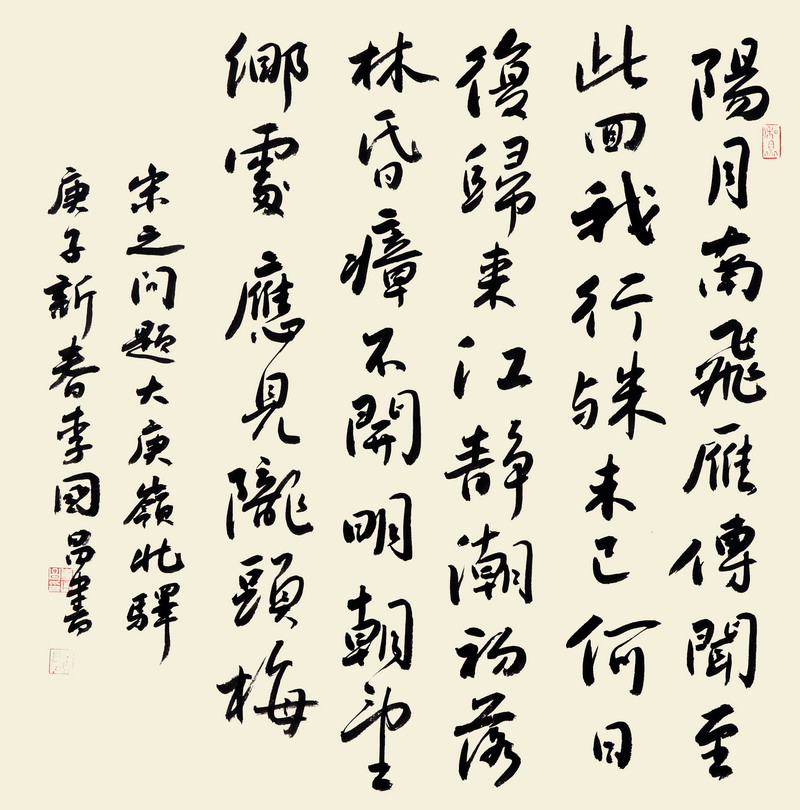 陽月南飛雁傳聞至
此回我行殊未已何日
復歸来江靜潮初落
林昏瘴不開明朝望
鄉處應見隴頭梅
宋之问題大庚嶺北驛
庚子新春李国昌書